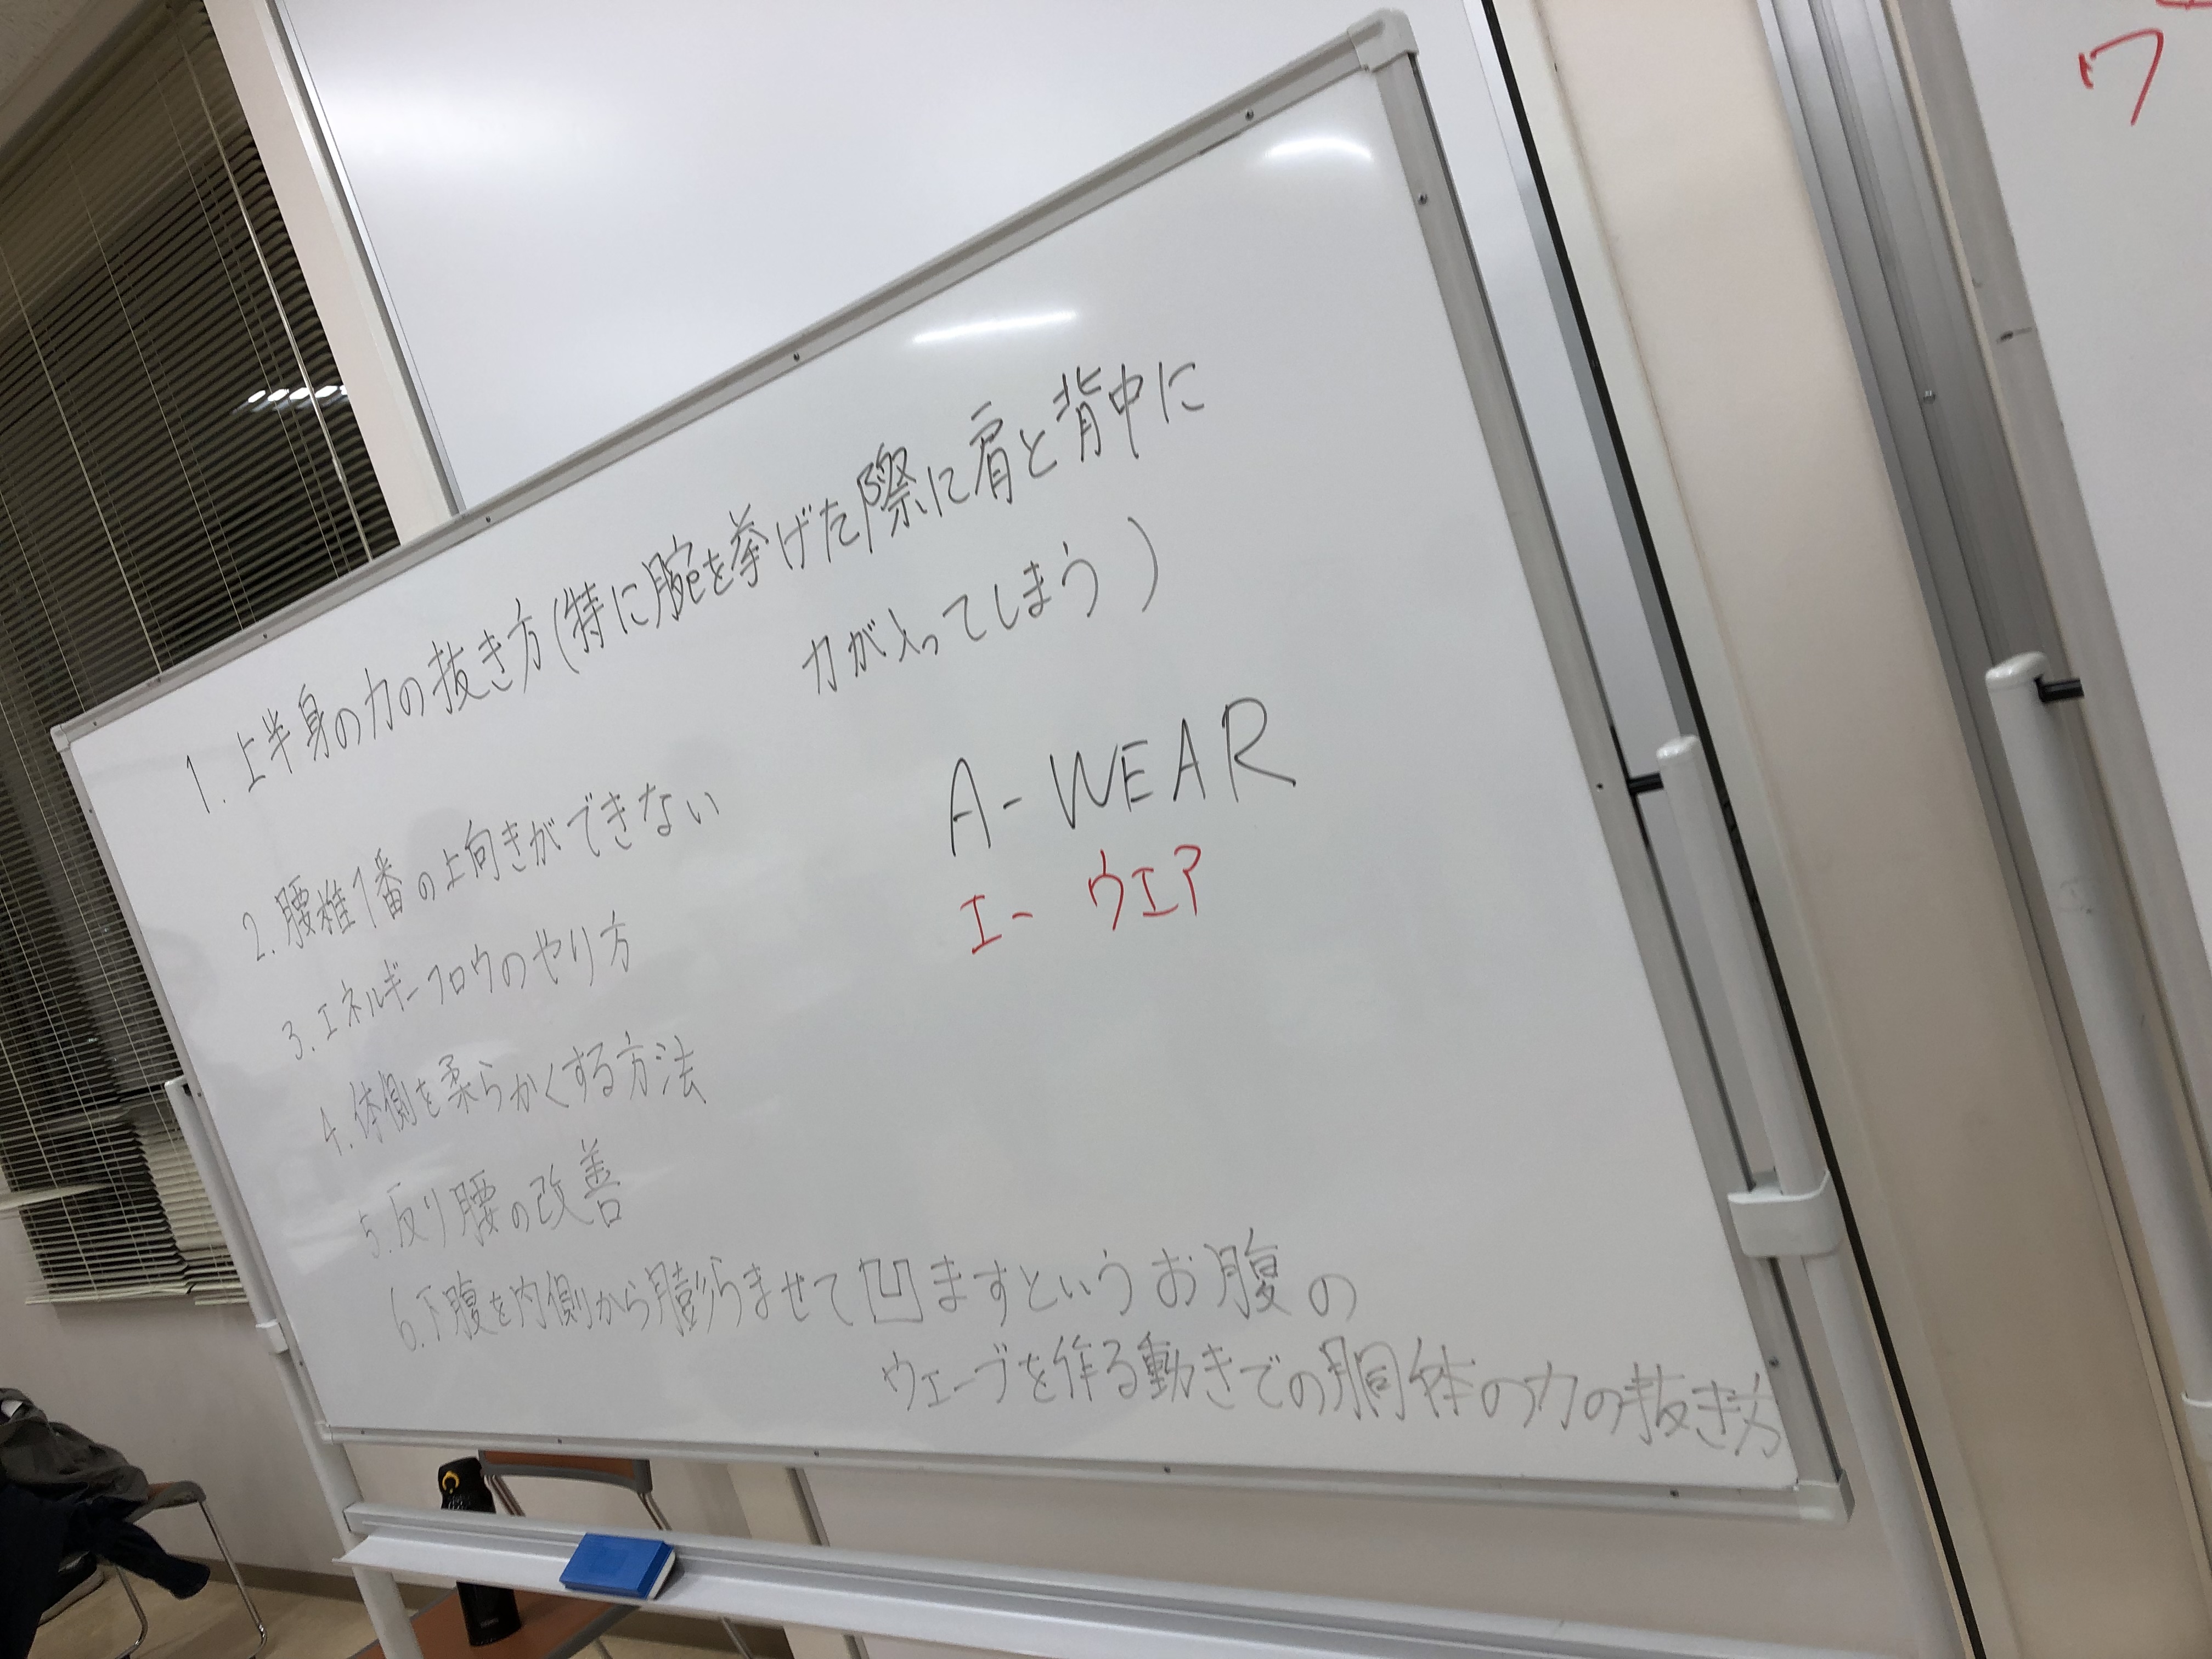 1. 上半身の力の抜き方(特に腕を挙げた際に肩と背中に
力が入ってしまう)
2. 腰椎1番の上向きができない
3. エネルギーフロウのやり方
4. 体側を柔らかくする方法
5. 反り腰の改善
6. 下腹を内側から膨らませて凹ますというお腹の
ウェーブを作る動きでの胴体の力の抜き方
A-WEAR
エー ウエア
ワ